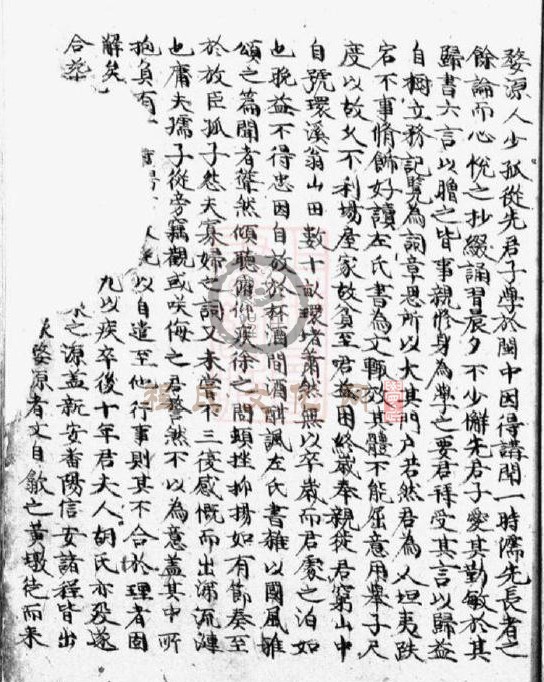 婺源人少孤從先君子學於閩中因得講聞一時儒先長者之
餘論而心悅之抄綴誦習晨夕不少懈先君子愛其勤敏於其
歸書六言以贈之皆事親修身為學之要君拜受其言以歸益
自樹立務記覽為詞章思所以大其門戶若然君為人坦夷跌
宕不事脩飾好讀左氏書為文輒效其體不能屈意用舉子尺
度以故久不利場屋家故貧至君益困終歲奉親從君窮山中
自號環溪翁山田數十畝環者蕭然無以卒歲而君處之泊如
也晚益不得志因自放於杯酒間酒酣諷左氏書雜以國風雅
頌之篇聞者聳然傾聽俯仰疾徐之間頓挫抑揚如有節奏至
於放臣孤子怨夫寡婦之詞又未嘗不三復感慨而出涕流漣
也庸夫孺子從旁竊觀或咲侮之君謷然不以為意蓋其中所
抱負有 以自遣至他行事則其不合於理者固
解矣 九以疾卒後十年君夫人胡氏亦歿遂
合葬 之源蓋新安番陽信安諸程皆出
婺源者文自歙之黃墩徙而來